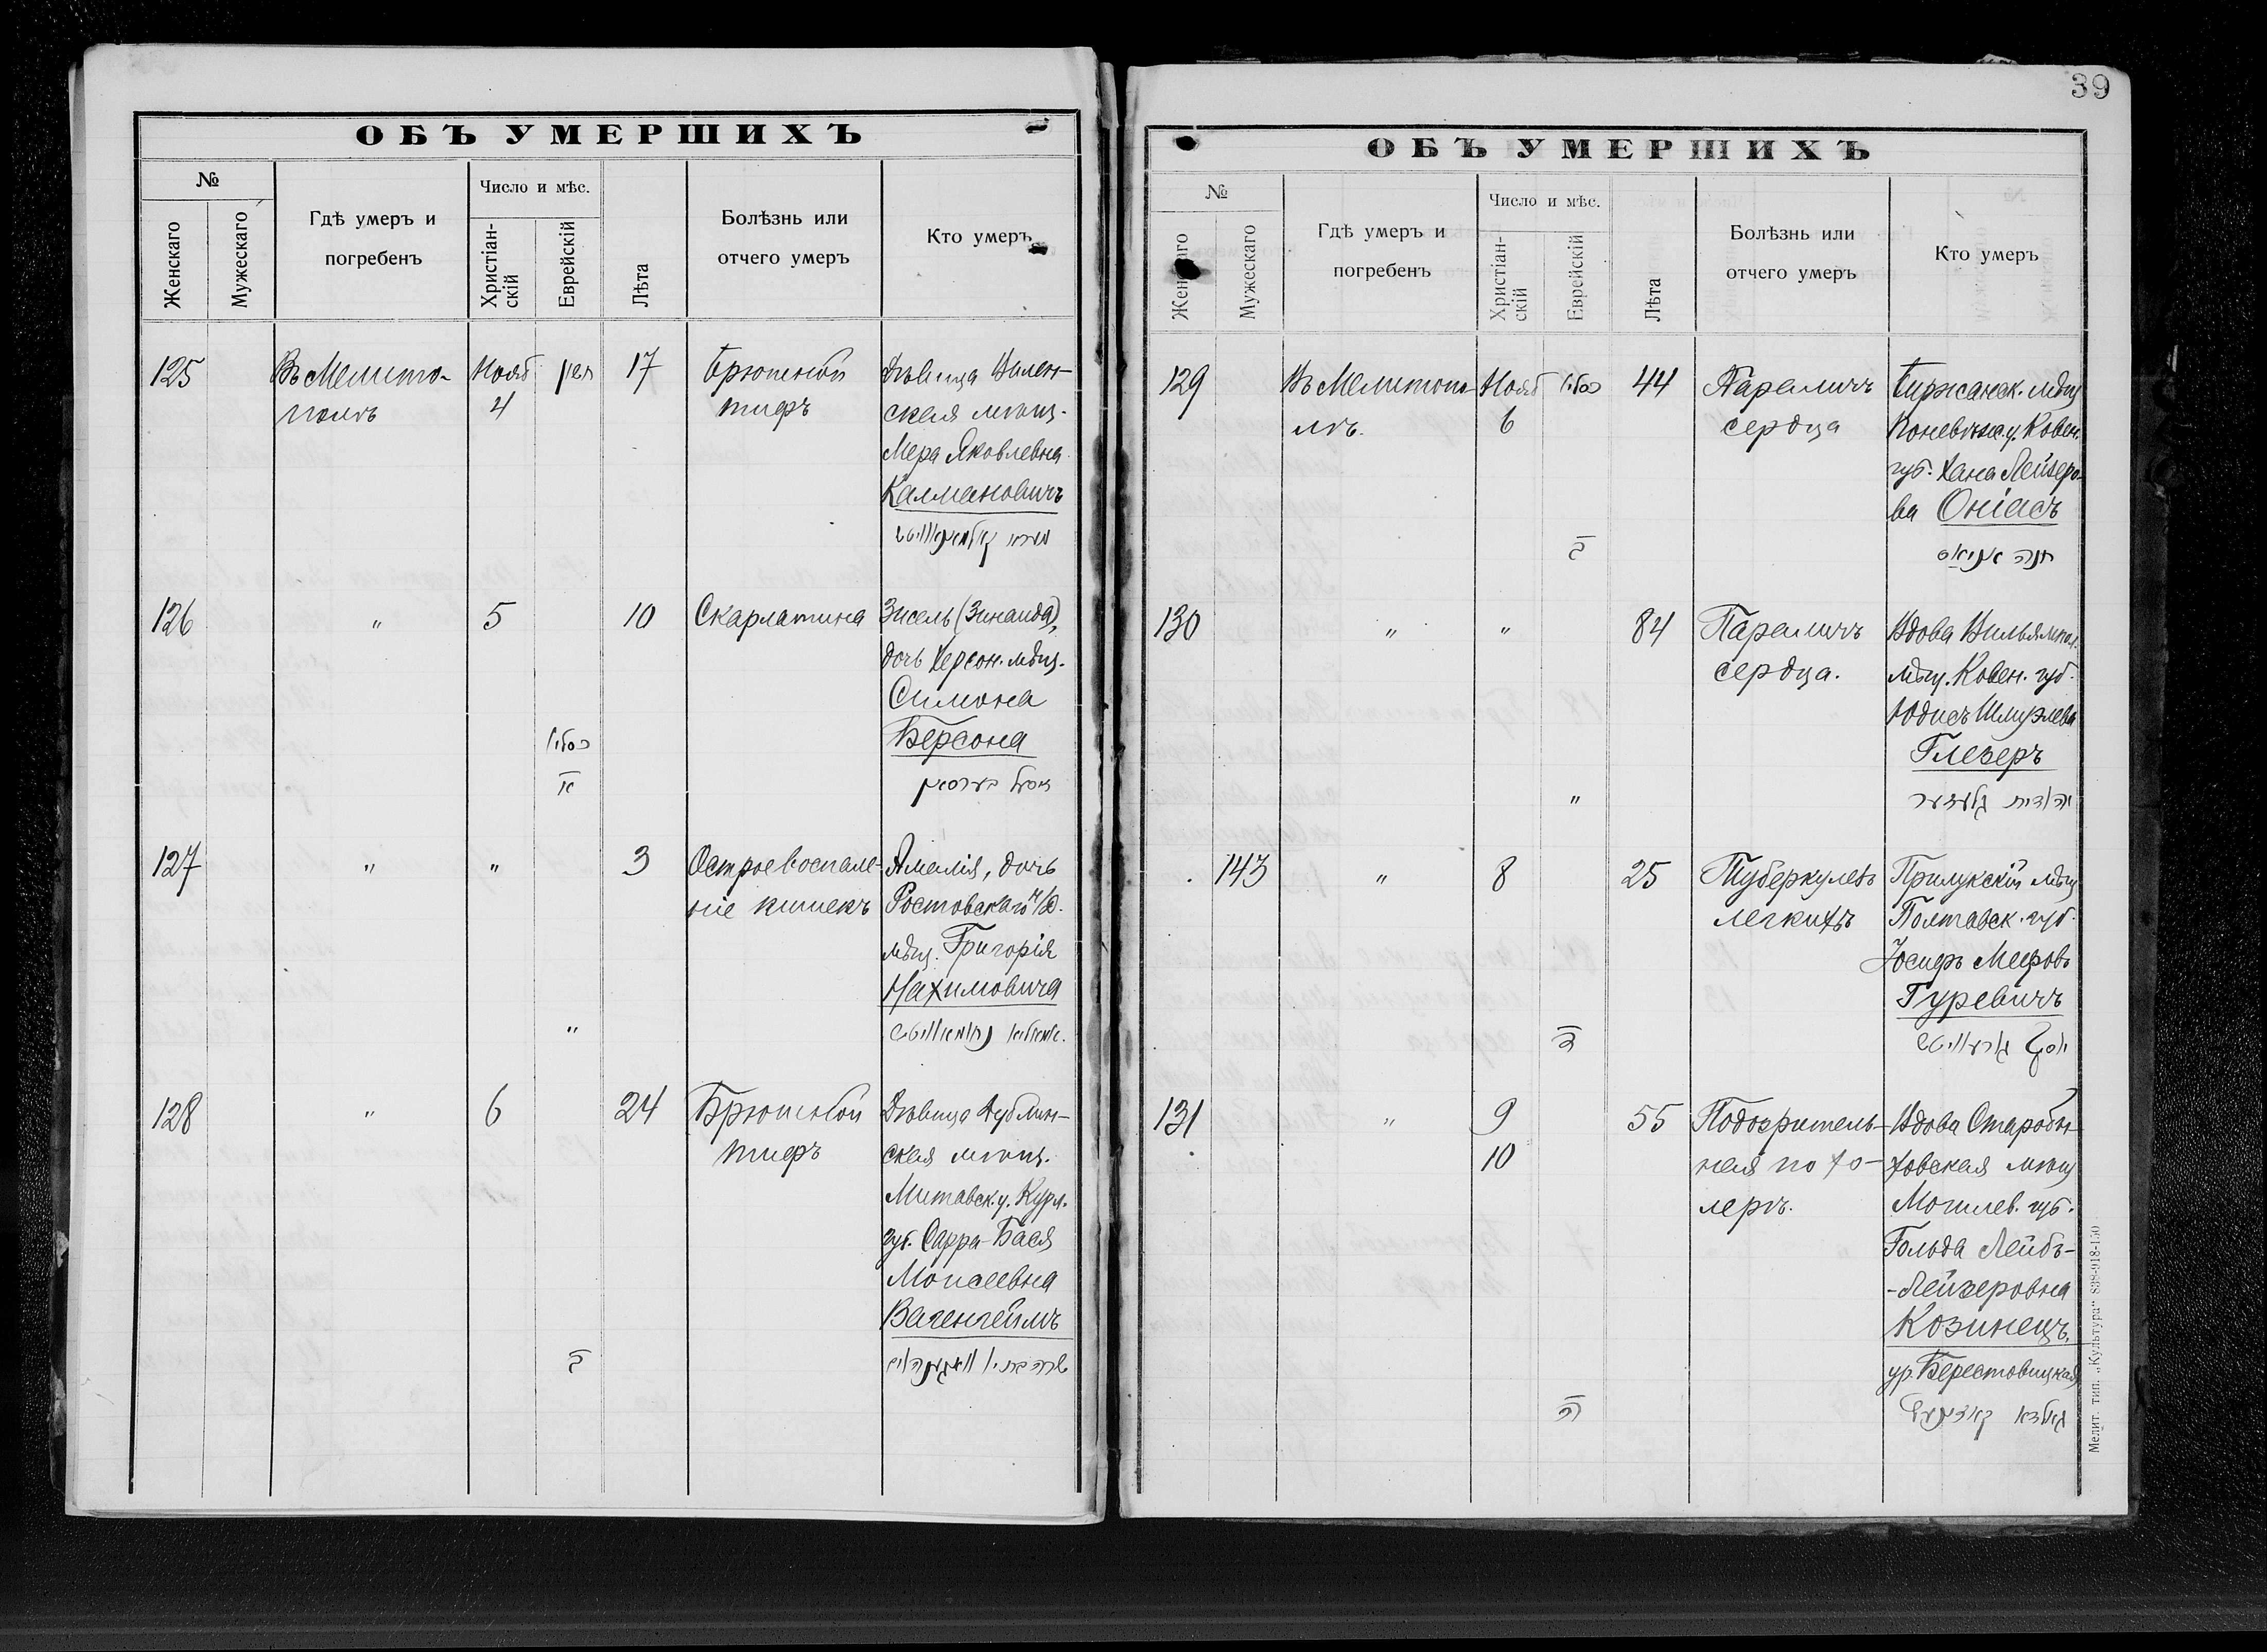 ОБЪ УМЕРШИХЪ
№
Женскаго
Мужескаго
Гдѣ умеръ и
погребенъ
Число и мѣс.
Христіан-
скій
Еврейскій
Лѣта
Болѣзнь или
отчего умеръ
Кто умеръ
125
Въ Мелито-
полѣ
Нояб ря
4
17
Брюшной
тифъ
Дѣвица Вилен-
ская мѣщ.
Мера Яковлевна
Калмановичъ
126
"
5
10
Скарлатина
Зисель (Зинаида),
дочь Херсон. мѣщ.
Симона
Берсона
כסלו
זיסל בערסאן
127
"
"
3
Острое воспале-
ніе кишекъ
Амалія, дочь
Ростовскаго н/Д.
мѣщ. Григорія
Нахимовича
"
128
"
6
24
Брюшной
тифъ
Дѣвица Дублин-
ская мѣщ.
Митавск. у. Курл.
губ. Сарра-Бася
Моисеевна
Вагенгеймъ
39
ОБЪ УМЕРШИХЪ
№
Женскаго
Мужескаго
Гдѣ умеръ и
погребенъ
Число и мѣс.
Христіан-
скій
Еврейскій
Лѣта
Болѣзнь или
отчего умеръ
Кто умеръ
129
Въ Мелитопо-
лѣ.
Нояб
6
כסלו
44
Параличъ
сердца
Биржанск. мѣщ
Поневѣж. у. Ковен.
губ. Хана Лейзеро-
ва Оніасъ
חנה אניאס
130
"
"
84
Параличъ
сердца.
Вдова Вильямпол.
мѣщ. Ковен. губ.
Юдисъ Шмуэлева
Глезеръ
"
יהודית גלעזער
143
"
8
25
Туберкулезъ
легкихъ
Прилукскій мѣщ
Полтавск. губ.
Іосифъ Меировъ
Гуревичъ
יוסף גורעוויטש
131
"
9
10
55
Подозритель-
ная по хо-
лерѣ.
Вдова Старобы-
ховская мѣщ
Могилев. губ.
Гольда Лейбъ-
-Лейзеровна
Козинецъ,
ур. Берестовицкая
Мелит. тип. „Культура“ 838-918-150